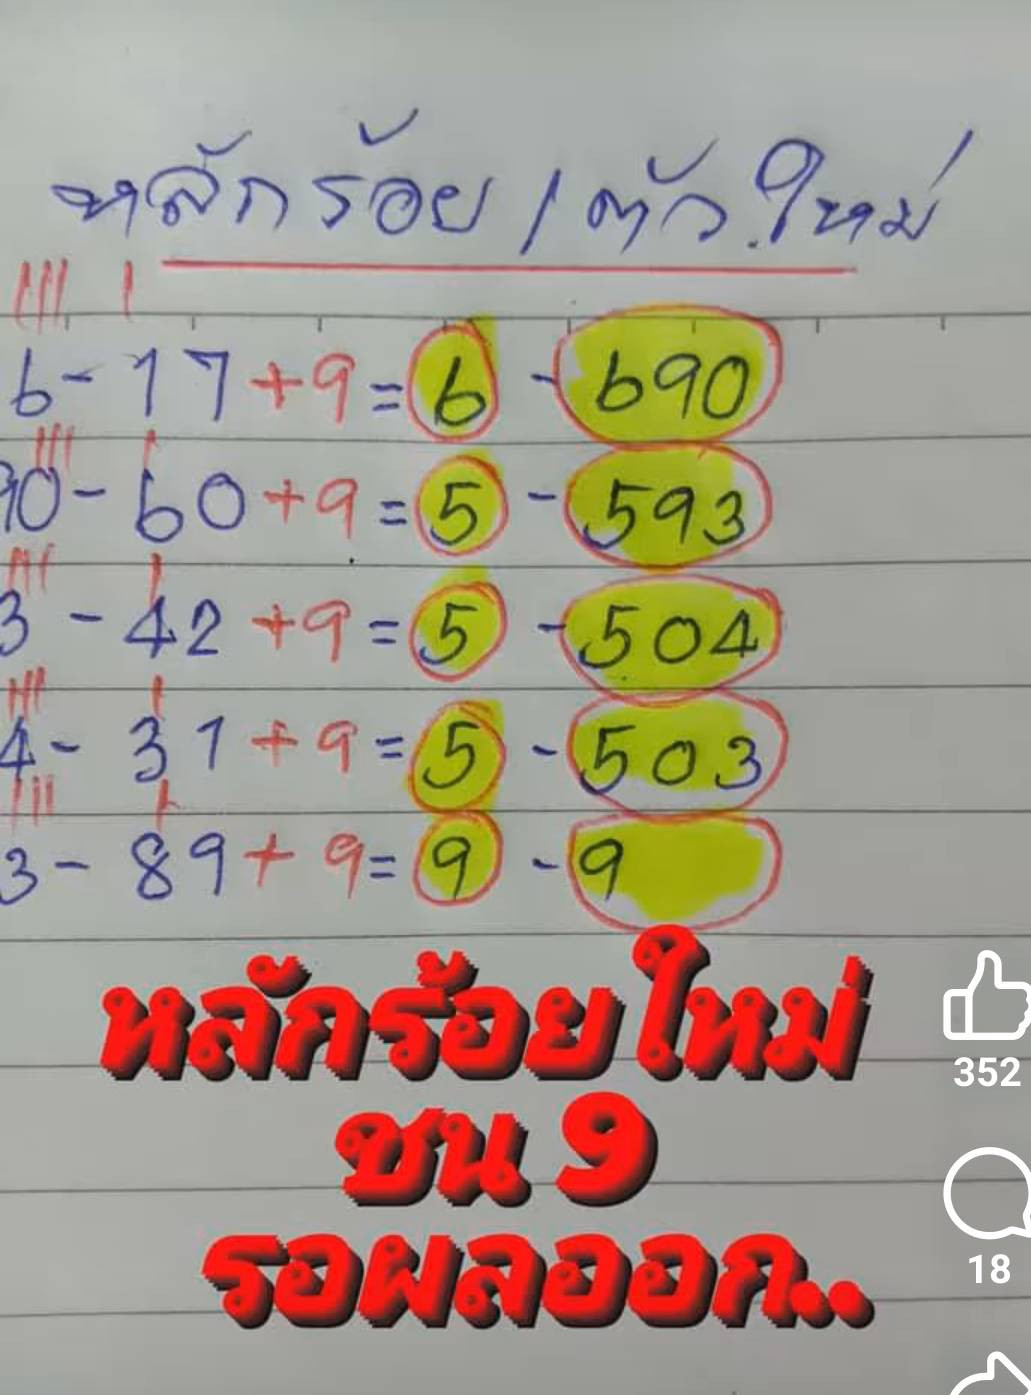 หลักร้อย 1 ตัว.ใหม่
6-17+9=6 - 690
90-60+9=5 - 593
3-42+9=5 - 504
4-31+9=5 - 503
3-89+9=9 - 9
หลักร้อยใหม่
ชน 9
รอผลออก..
352
18